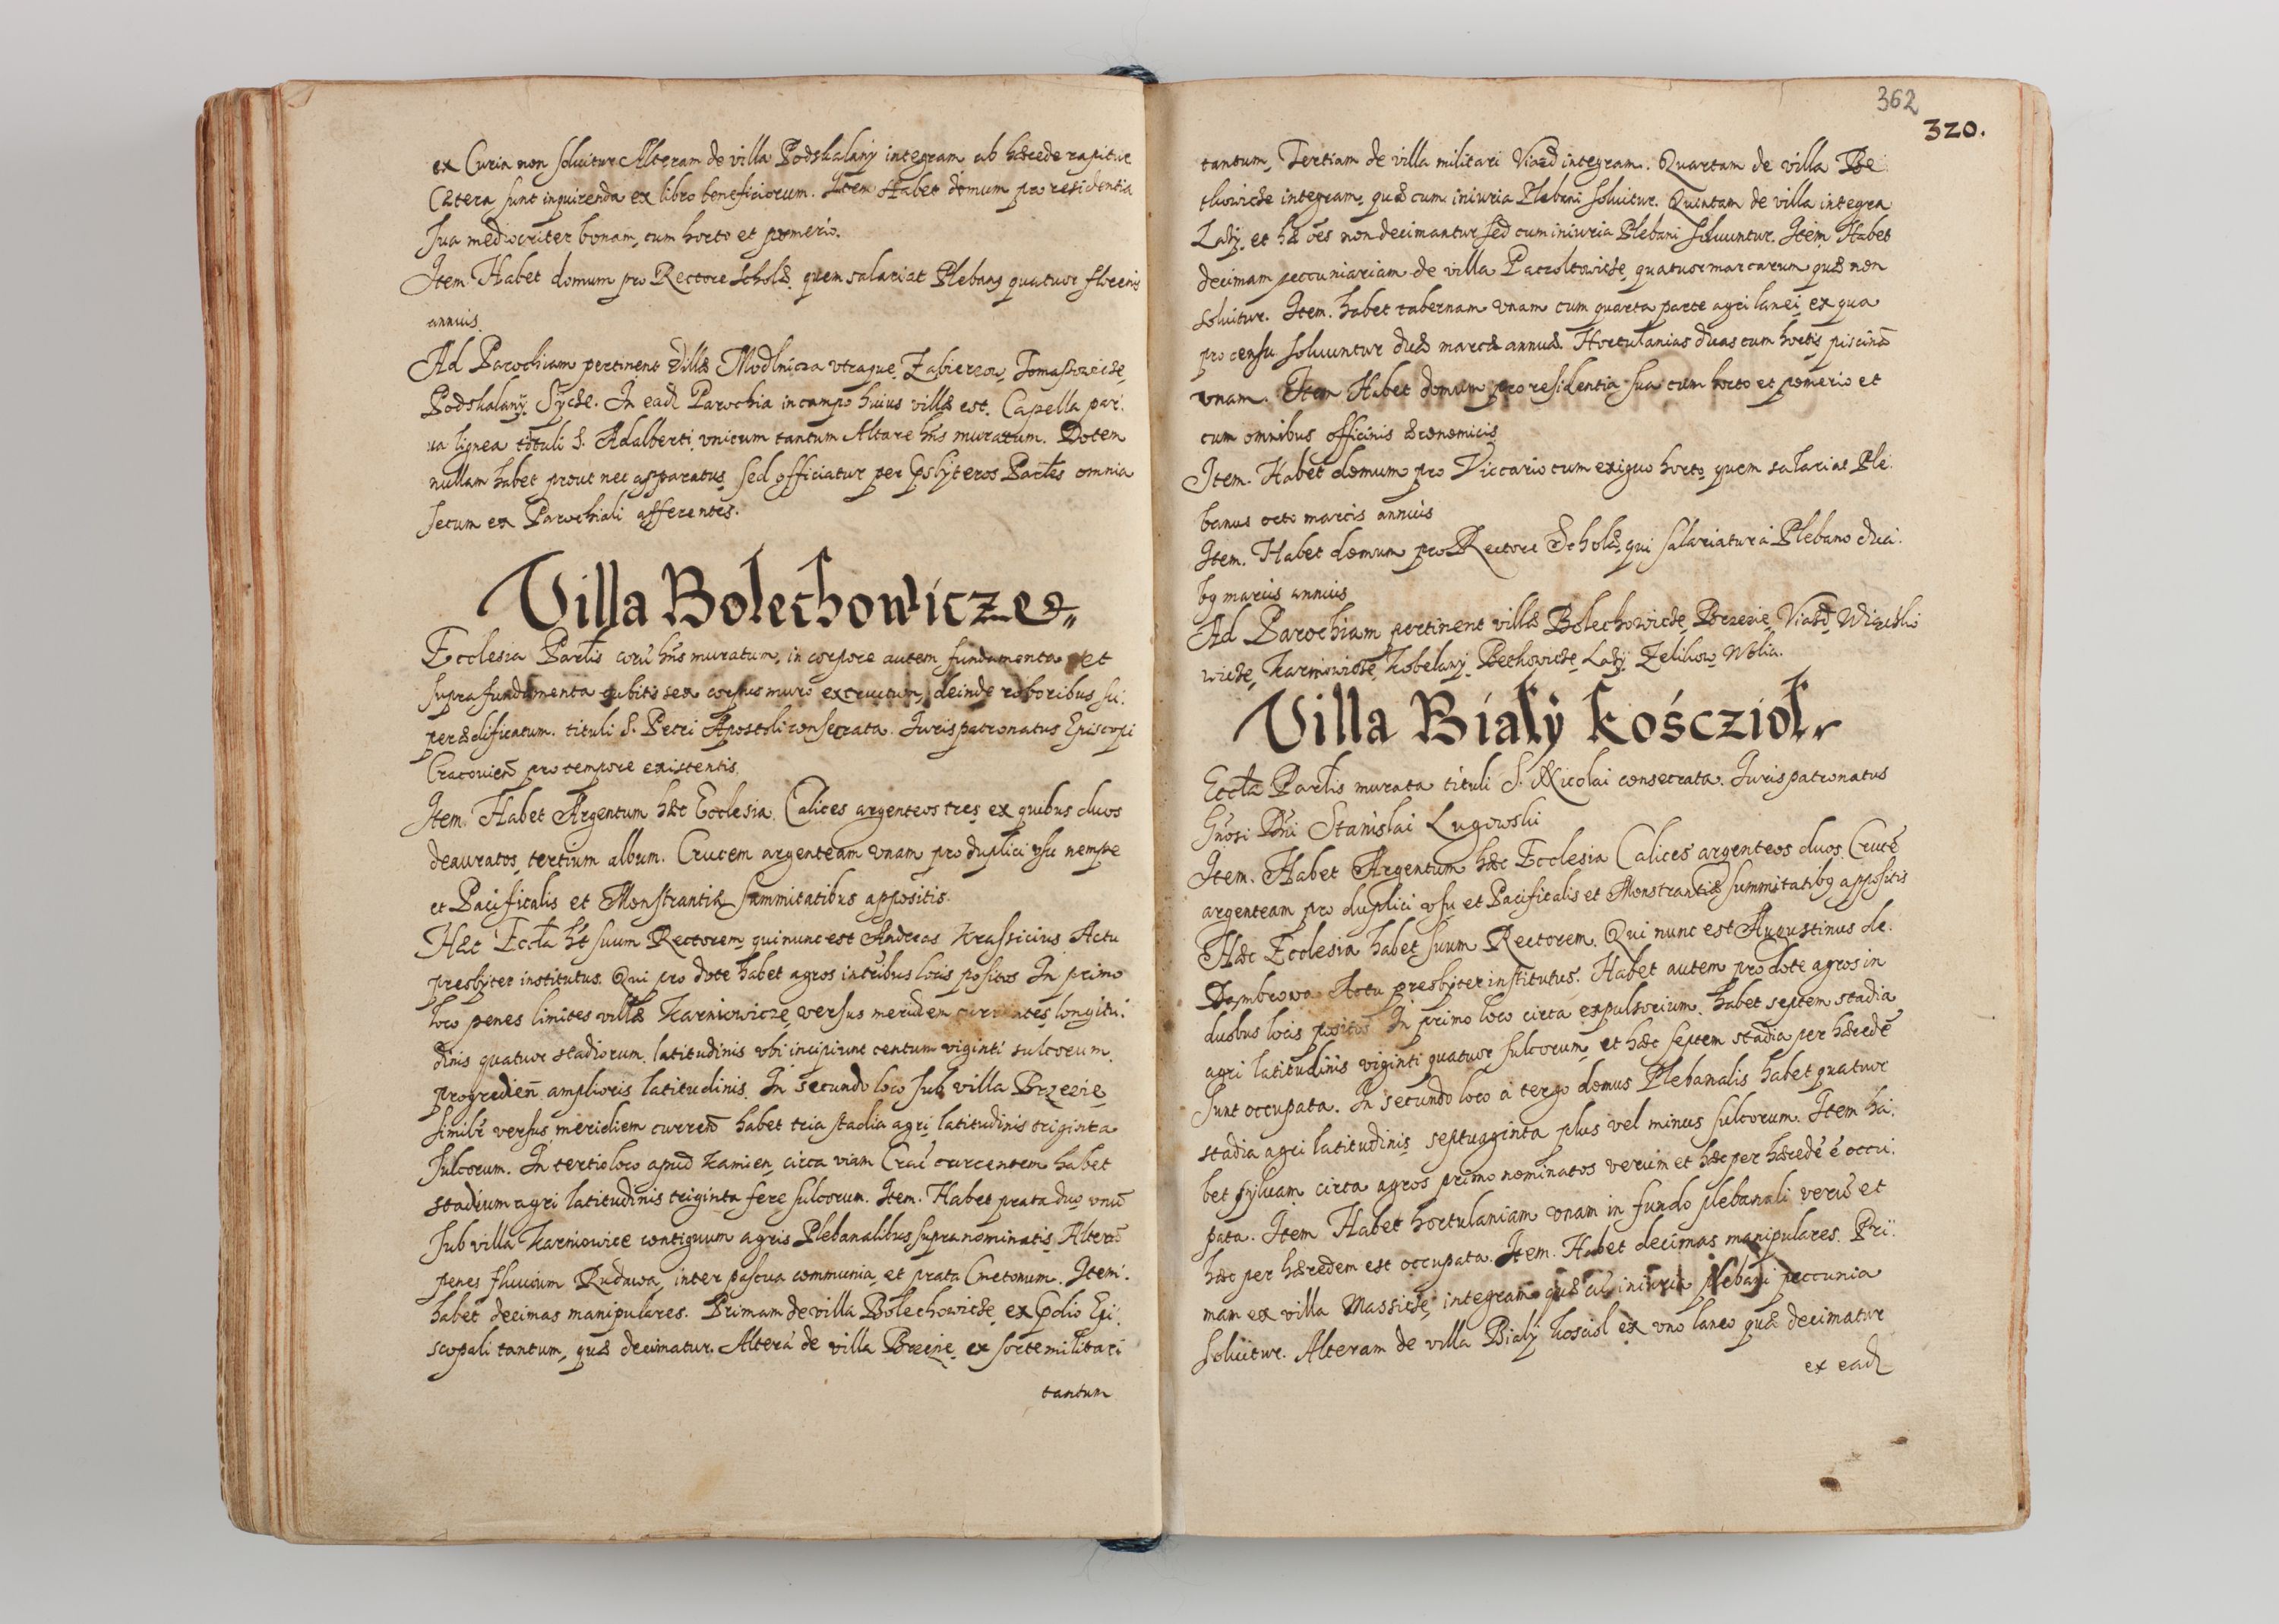 ex Curia non soluitur Alteram de villa Podskalany integram ab hærede rapitur
Cætera sunt inquirenda ex libro beneficiorum. Item Habet domum pro residentia
sua mediocriter bonam, cum horto et pomerio.
Item Habet domum pro Rectore Scholæ, quem salariat Plebanꝰ quatuor florenis
annuis.
Ad Parochiam pertinent Villæ Modlnicza vtraque, Zabierzow, Tomassowicze,
Podskalany, Sycze. In ead Parochia in campo huius villæ est. Capella par:
ua lignea tituli S. Adalberti, vnicum tantum Altare hñs muratum. Dotem
nullam habet prout nec apparatus, sed officiatur per Psbyteros Parles omnia
secum ex Parochiali afferentes.
Villa Bolechowicze
Ecclesia Parlis corũ hñs muratum, in corpore autem fundamenta et
supra fundamenta cubito sex corpus muro extructum, deinde roboribus su:
peræedificatum. tituli S. Petri Apostoli consecrata. Juris patronatus Episcopi
Cracovien̄ pro tempore existentis.
Item. Habet Argentum hæc Ecclesia. Calices argenteos tres, ex quibus duos
deauratos, tertium album. Crucem argenteam vnam pro duplici vsu nempe
et Pacificalis et Monstrantiæ summitatibus appositis.
Hæc Eccla hēt suum Rectorem, qui nunc est Andreas Krassicius Actu
presbyter institutus. Qui pro dote habet agros in tribus locis positos In primo
loco penes limites villæ Karniowicze, versus meridiem currentes, longitu:
dinis quatuor stadiorum, latitudinis vbi incipiunt centum viginti sulcorum,
progredien̄ amplioris latitudinis. In secundo loco sub villa Brzezie
similr̄ versus meridiem curren̄ habet tria stadia agri, latitudinis triginta
sulcorum. In tertio loco apud Kamien, circa viam Crac̄ currentem habet
stadium agri latitudinis triginta fere sulcorum. Item. Habet prata duo vnū
sub villa Karniowice contiguum agris Plebanalibus supra nominatis, Alterū
penes fluuium Rudawa, inter pascua communia, et prata Cmetonum. Item.
habet decimas manipulares. Primam de villa Bolechowicze, ex Epolio Epi:
scopali tantum, quæ decimatur. Alterā de villa Brzezie, ex sorte militari
tantum
362
320.
tantum, Tertiam de villa militari Viazd integram. Quartam de villa Be:
thowicze integram, quæ cum iniuria Plebani soluitur. Quintam de villa integra
Lazy, et hæ oēs non decimantur sed cum iniuria Plebani soluuntur. Item Habet
decimam peccuniariam de villa Paczoltowicze, quatuor marcarum quæ non
soluitur. Item. habet tabernam vnam cum quarta parte agri lanei, ex qua
pro censu soluuntur duæ marcæ annuæ. Hortulanias duas cum hortis, piscinā
vnam. Item Habet domum pro residentia sua cum horto et pomerio et
cum omnibus officinis œconomicis
Item. Habet domum pro Viccario cum exiguo horto, quem salariat Ple:
banus octo marcis annuis
Item. Habet domum pro Rectore Scholæ, qui salariatur à Plebano dua:
bꝰ marcis annuis
Ad Parochiam pertinent villæ Bolechowicze, Brzezie, Viazd,
wicze, Karniowicze, Kobelany, Bethowicze, Lazy, Zelikow, Wolia.
Villa Biały kośczioł
Eccla Parlis murata tituli S. Nicolai consecrata. Juris patronatus
Gn̄osi Dn̄i Stanislai Lugowski
Item. Habet Argentum hæc Ecclesia Calices argenteos duos, Crucē
argenteam pro duplici vsu et Pacificalis et Monstrantiæ summitatibꝰ appositis
Hæc Ecclesia habet suum Rectorem. Qui nunc est Augustinus de.
Dambrowa Actu presbyter institutus. Habet autem pro dote agros in
duobus locis positos In primo loco circa expulsorium, habet septem stadia
agri latitudinis viginti quatuor sulcorum, et hæc septem stadia per hæredē
sunt occupata. In secundo loco à tergo domus Plebanalis habet quatuor
stadia agri latitudinis septuaginta plus vel minus sulcorum. Item ha:
bet syluam circa agros primo nominatos verum et hæc per hæredē ē occu:
pata. Item Habet hortulaniam vnam in fundo plebanali verū et
hæc per hæredem est occupata. Item. Habet decimas manipulares. Pri:
mam ex villa Massicze, integram quæ cū iniuria plebani peccunia
soluitur. Alteram de villa Biały kosciol ex vno laneo quæ decimatur
ex ead